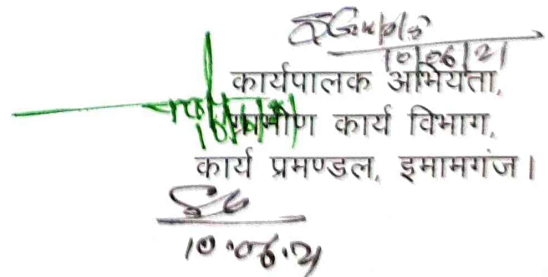 10/06/21
कार्यपालक अभियंता,
ग्रामीण कार्य विभाग,
कार्य प्रमण्डल, इमामगंज।
10.06.21